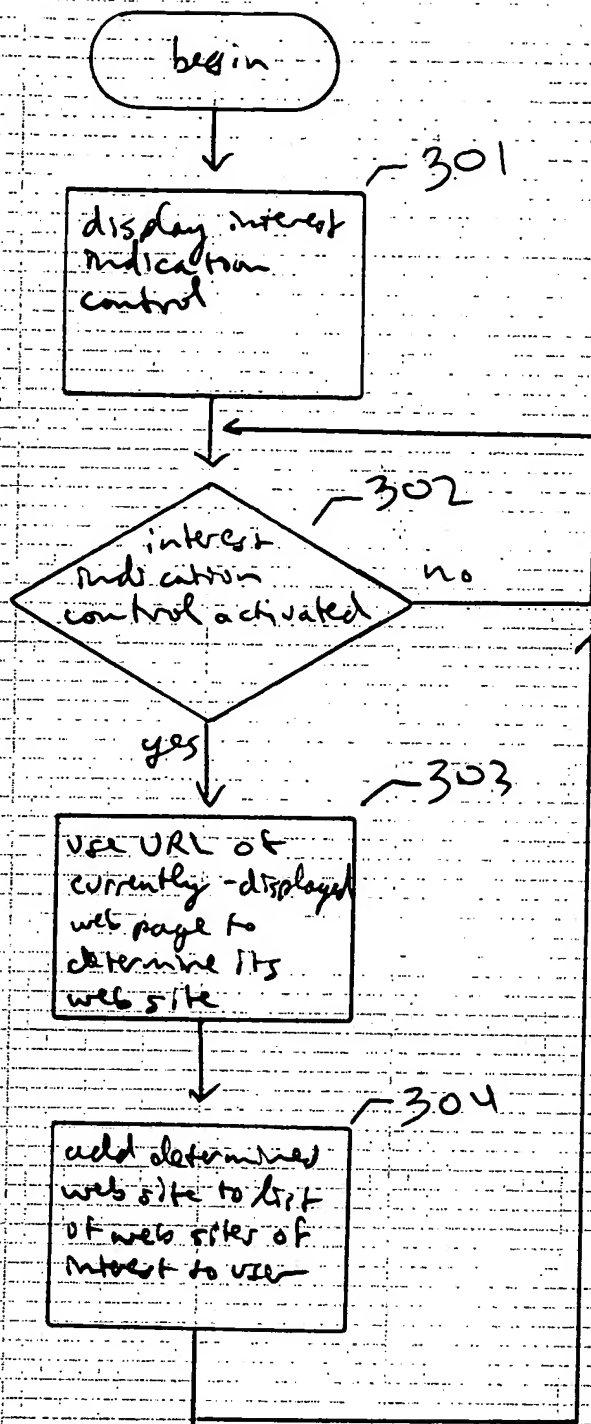 begin
301
display interest
indication
control
302
interest
indication
control activated
no
yes
303
use URL of
currently-displayed
web page to
determine its
web site
304
add determined
web site to list
of web sites of
interest to user